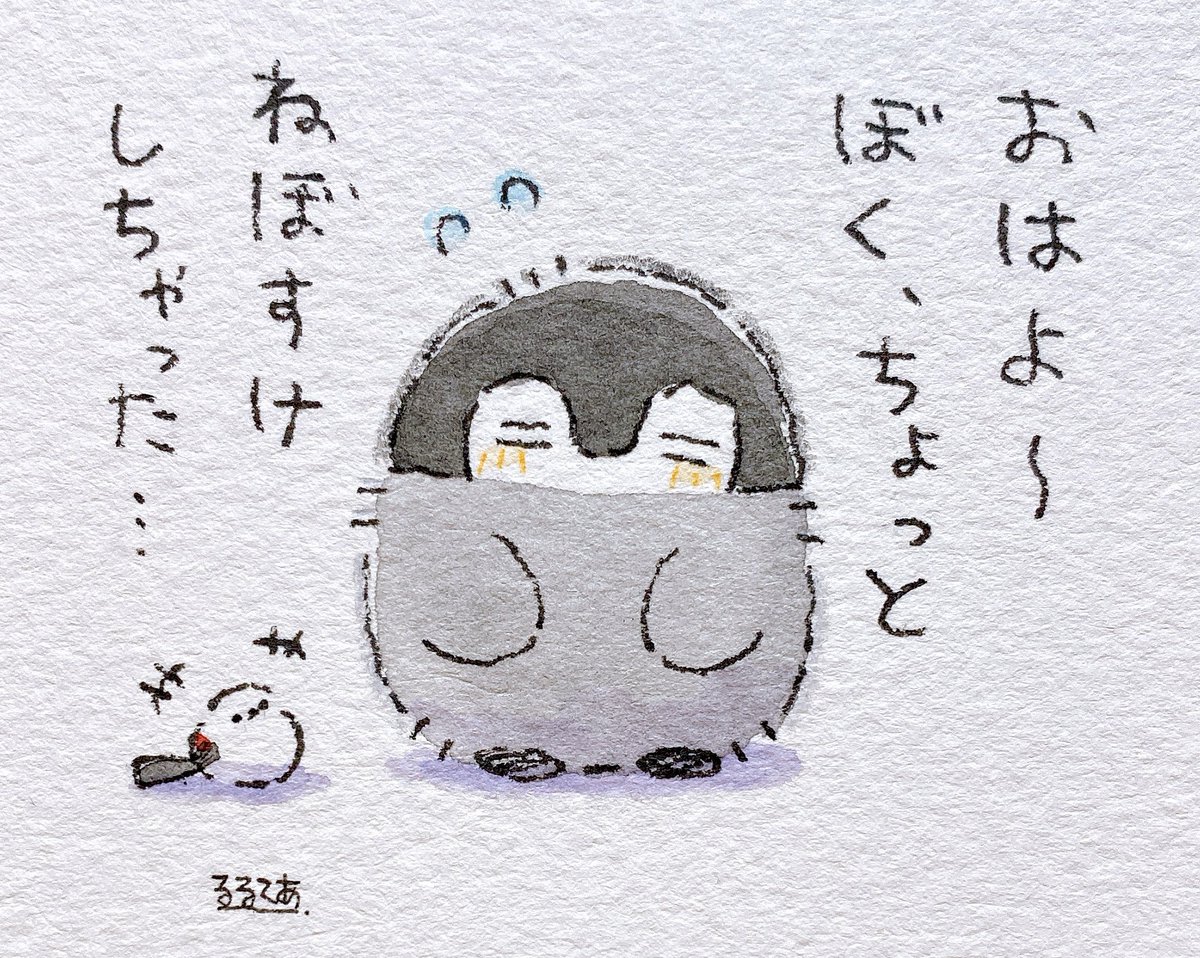 おはよ〜
ぼく、ちょっと
ねぼすけ
しちゃった…
るるてあ.